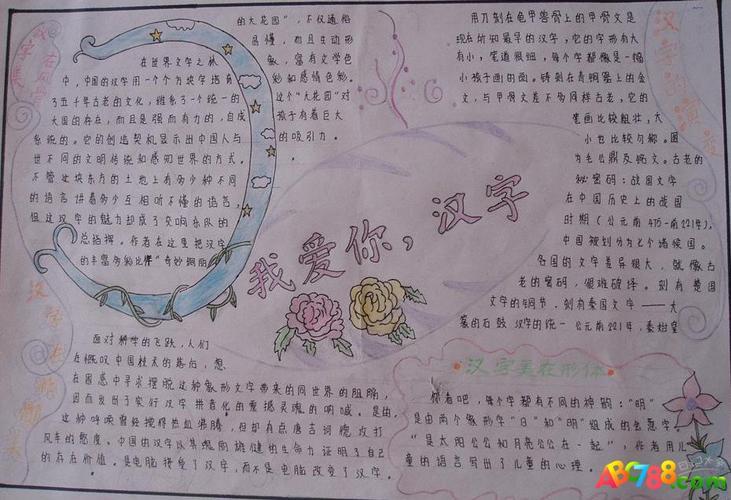 的大花园"，不仅通俗
易懂，而且生动形
象，富有文学色
彩和感情色彩。
这个"大花园"对
孩子有着巨大
的吸引力。
在世界文字之林
中，中国的汉字用一个个方块字培育
了五千年古老的文化，维系了一个统一的
大国的存在，而且是强而有力的，自成
系统的。它的创造契机显示出中国人与
世不同的文明传统和感知世界的方式。
不管这块东方的土地上有多少种不同
的语言讲着多少互相听不懂的语言，
但这汉字的魅力却成了交响乐队的
总指挥。作者在这里把汉字
的丰富多彩比作"奇妙
我爱你，汉字
用刀刻在龟甲兽骨上的甲骨文是
现在所知最早的汉字，它的字形有大
有小，笔道很细，每个字都像是一幅
小孩子画的画。铸刻在青铜器上的金
文，与甲骨文差不多同样古老，它的
笔画比较粗壮，大
小也比较匀称。图
为毛公鼎及铭文。古老的
秘密码：战国文字
在中国历史上的战国
时期（公元前475-前221年），
中国被划分为七个诸侯国。
各国的文字差异很大，就像古
老的密码，很难破译。刻有楚国
文字的铜节，刻有秦国文字——大
篆的石鼓 汉字的统一 公元前221年，秦始皇
面对科学的飞跃，人们
在慨叹中国技术的落后，想
在困惑中寻求摆脱这种象形文字带来的同世界的阻隔，
因而发出了实行汉字拼音化的震撼灵魂的呐喊。是的，
这种呼唤曾经搅得热血沸腾，但却有点唐吉诃德攻打
风车的态度。中国的汉字以其雄健的生命力证明了自己
的存在价值。是电脑接受了汉字，而不是电脑改变了汉字。
汉字美在形体
你看吧，每个字都有不同的神韵："明"
是由两个象形字"日"和"明"组成的会意字
"是太阳公公和月亮公公在一起"，作者用儿
童的语言写出了儿童的心理。
ABC788.com